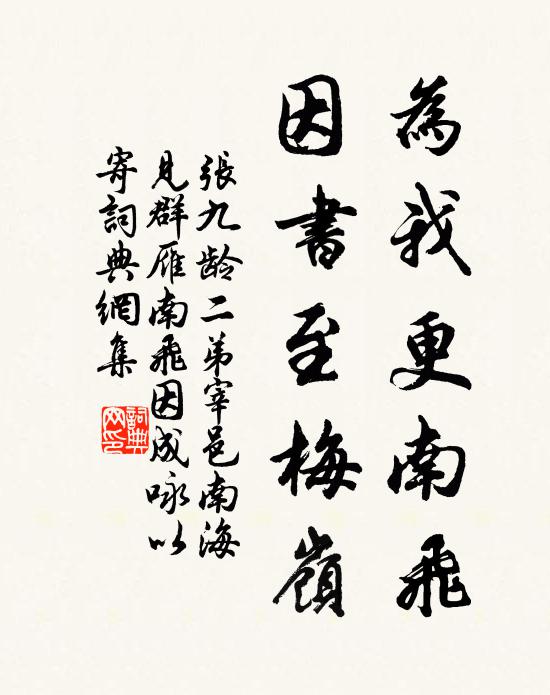 為我更南飛
因書至梅嶺
張九齡二弟宰邑南海
見群雁南飛因成咏以
寄詞典網集
詞典
网印